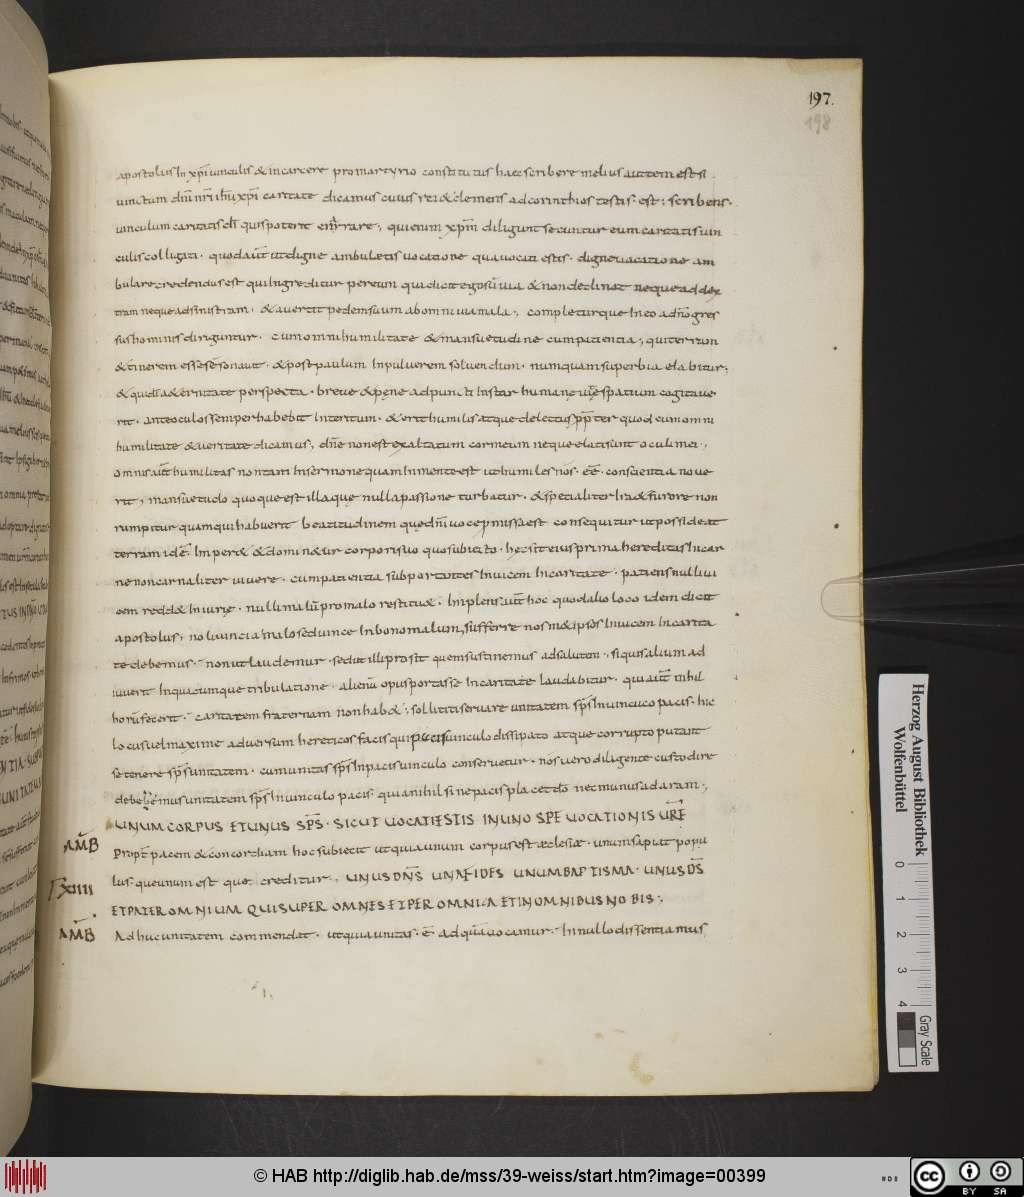 197.
198
apostolus In xp̄i uinculis & in carcere pro martyrio constitutus haec scribere melius autem est si
uinctum dn̄i nr̄i ih̄u xp̄i caritate dicamus cuius rei & clemens ad corinthios testis est; scribens.
uinculum caritatis dī quis poterit enarrare; qui enim xp̄m diligunt secuntur eum caritatis uin
culis colligati. quod aūt ut digne ambuletis uocatione qua uocati estis. digne uocatione am
bulare credendus est qui Ingreditur per eum qui dicit ego sū uia & non declinat neque ad dex
tram neque ad sinistram. & auertit pedem suum ab omni uia mala; completurque In eo a dn̄o gres
sus hominis diriguntur. cum omni humilitate & mansuetudine cum patientia; qui terram
& cinerem esse se sonauit. & post paulum In puluerem soluendum. numquam superbia elabitur;
& qui diū aeternitate perspecta. breue & pęne ad puncti Instar humanę uitę spatium cogitaue
rit. ante oculos semper habebit Interitum. & erit humilis atque deiectus ꝓpter quod cum omni
humilitate & ueritate dicamus; dn̄e non est exaltatum cor meum neque elati sunt oculi mei;
omnis aūt humilitas non tam In sermone quam In mente est ut humiles nos. eē. conscientia noue
rit; mansuetudo quoque est illa quę nulla passione turbatur. & specialiter Ira & furore non
rumpitur quam qui habuerit beatitudinem quę dn̄i uoce p̄missa est consequitur ut possideat
terram idē Imper& & domin&ur corpori suo quo subiecto. hęc sit eius prima hereditas In car
ne non carnaliter uiuere. cum patientia subportantes Inuicem In caritate. patiens nulli ui
cem redd& Iniurię. nulli malū pro malo restitu&. Implens aūt hoc quod alio loco idem dicit
apostolus; noli uinci a malo sed uince In bono malum, sufferre nos m& ipsos Inuicem In carita
te debemus. non ut laudemur. sed ut illi prosit quem sustinemus ad salutem. si quis alium ad
iuuerit In quacumque tribulatione. alienū opus portasse In caritate laudabitur. qui aūt nihil
horū fecerit. caritatem fraternam non hab&; solliciti seruare unitatem sp̄s In uinculo pacis. hic
locus uel maxime aduersum hereticos facis qui pacis uinculo dissipato atque corrupto putant
se tenere sp̄s unitatem. cum unitas sp̄s In pacis uinculo conseruetur. nos uero diligente custodire
debemus unitatem sp̄s In uinculo pacis. quia nihil sine pacis placet dō nec munus ad aram;
UNUM CORPUS ET UNUS SP̄S. SICUT UOCATI ESTIS IN UNO SPE UOCATIONIS UR̄E
AM̄B
Propt̄ pacem & concordiam hoc subiecit ut quia unum corpus est ęclesiae. unum sapiat popu
Γ xiiii
lus. que unum est que creditur. UNUS DN̄S UNA FIDES UNUM BAPTISMA. UNUS DS̄
ET PATER OMNIUM QUI SUPER OMNES ET PER OMNIA ET IN OMNIBUS NOBIS;
AM̄B
Adhuc unitatem commendat. ut quia unitas. ē ad quā uocamur. In nullo dissentiamus
Herzog August Bibliothek
Wolfenbüttel
0 1 2 3 4
Gray Scale
© HAB http://diglib.hab.de/mss/39-weiss/start.htm?image=00399
cc BY SA